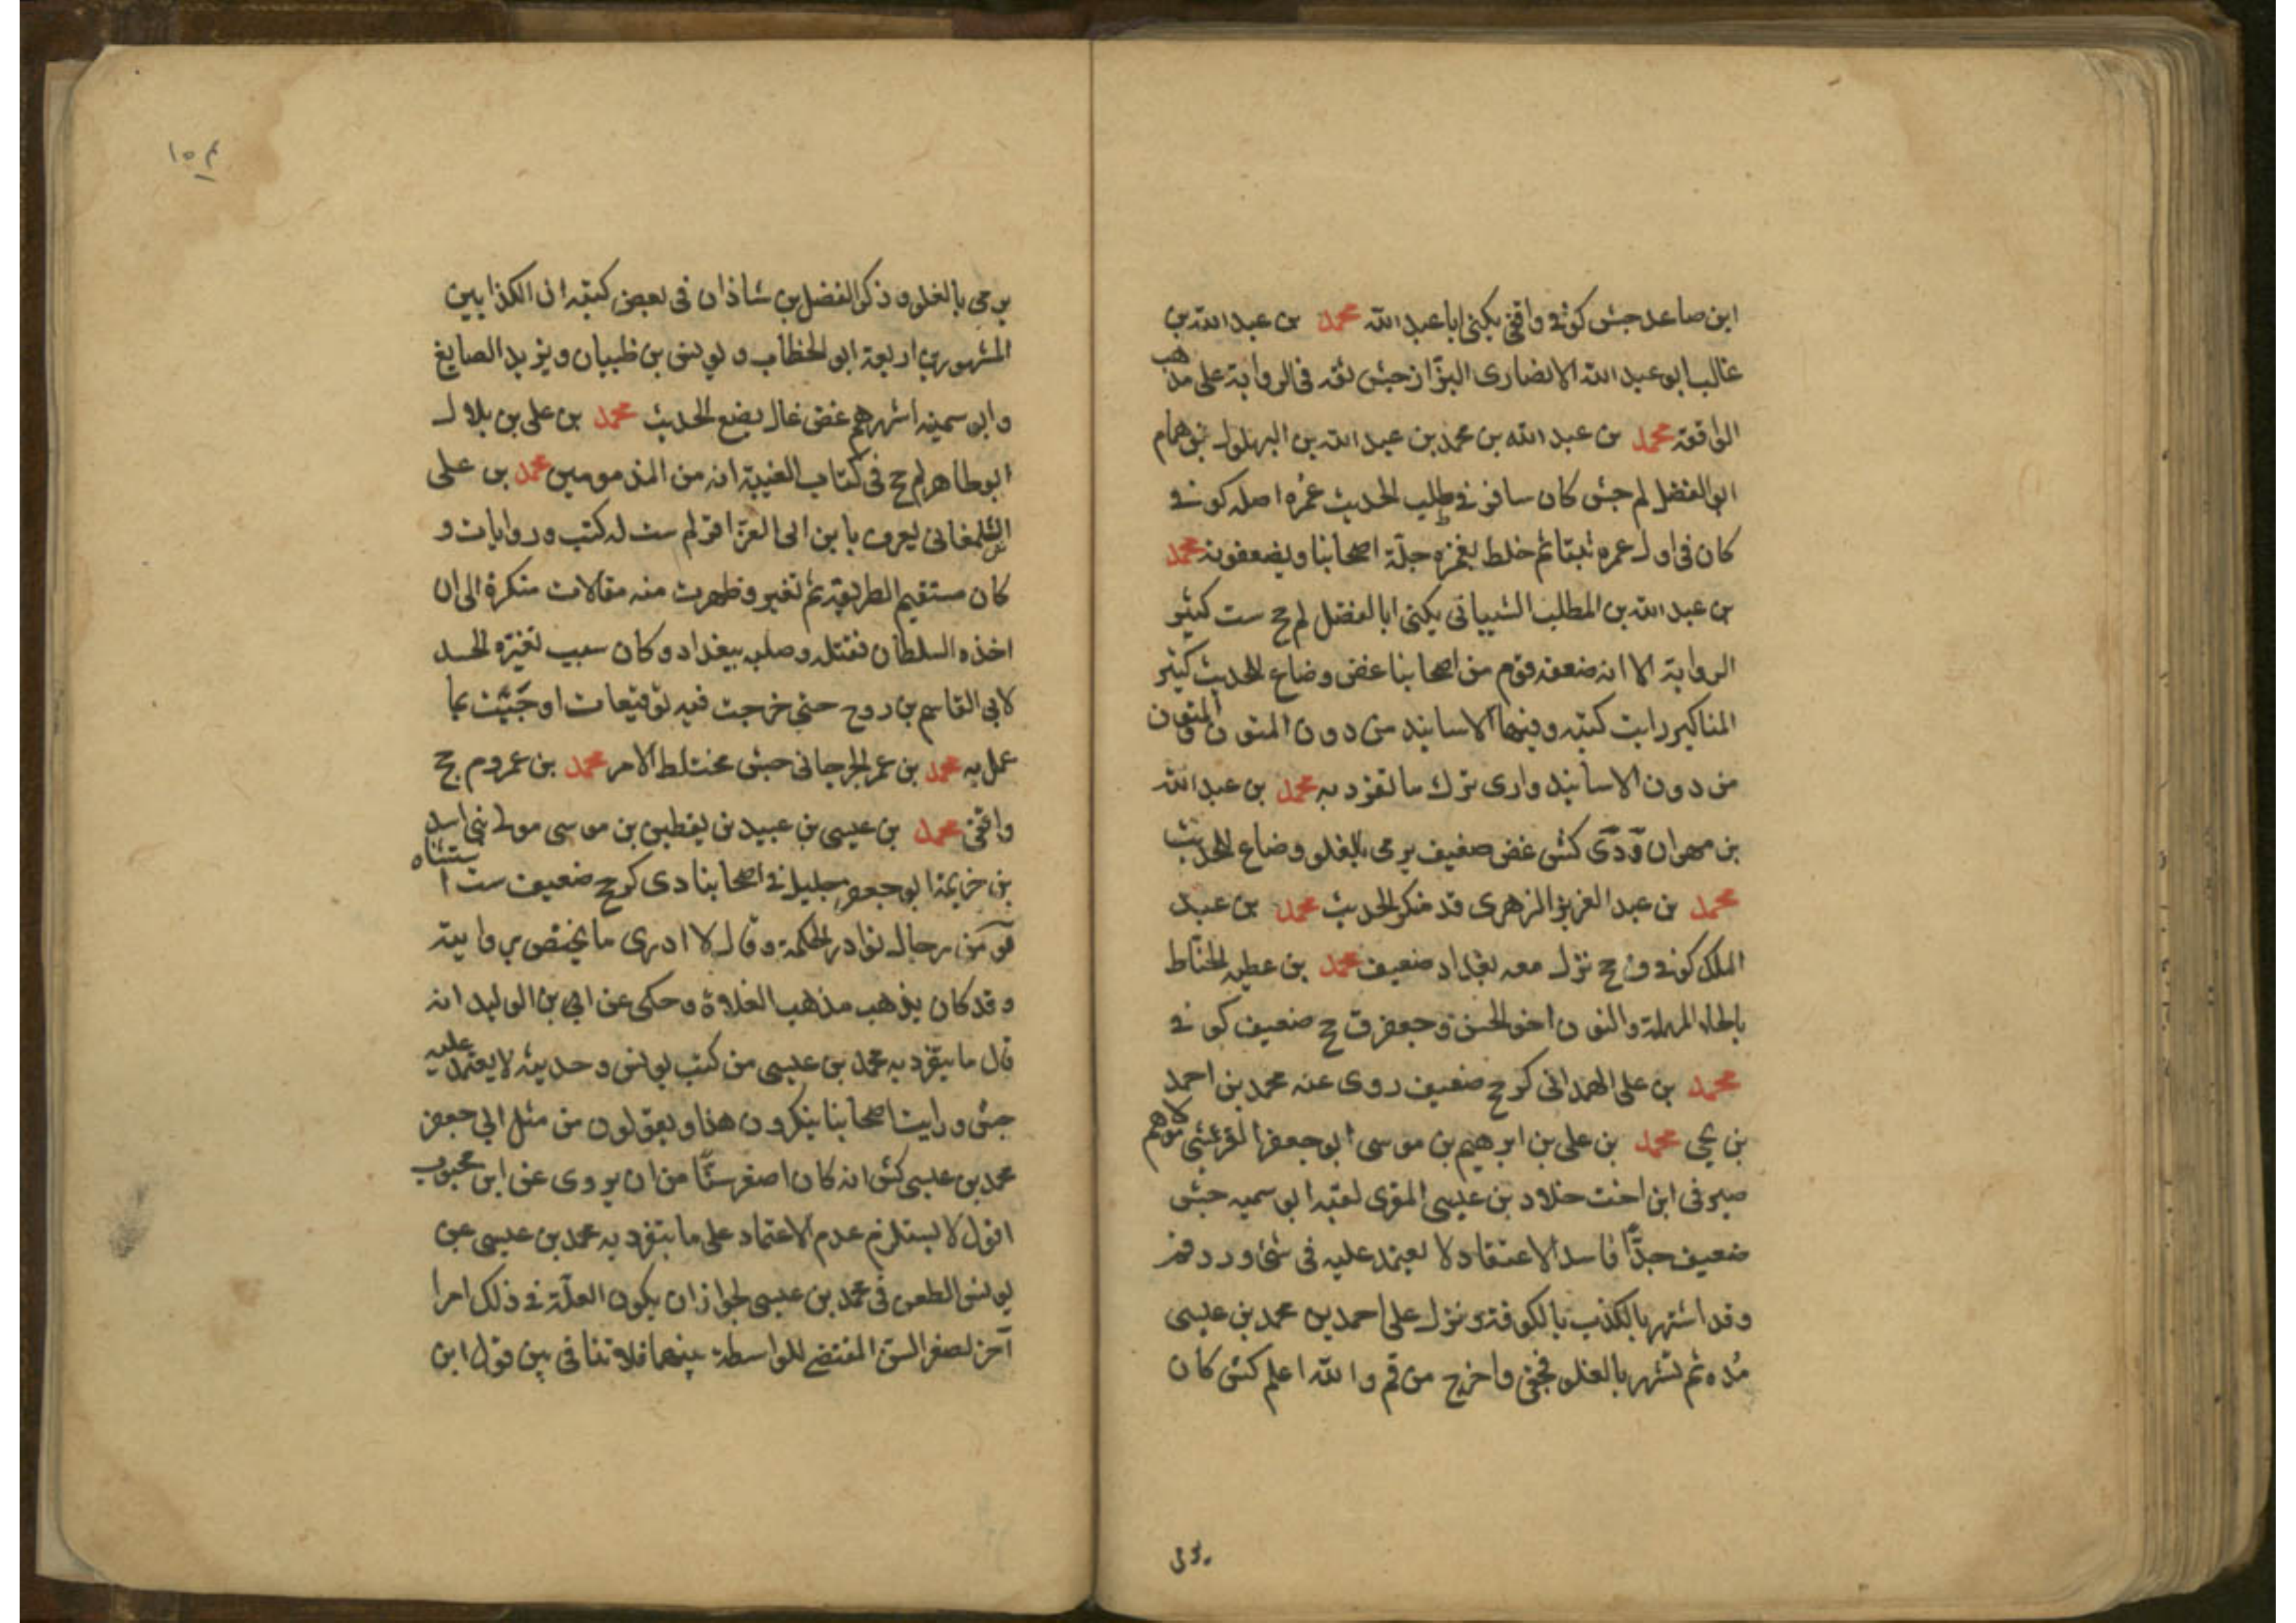 ابن صاعد جش كوفي واقفي يكنى ابا عبد الله محمد بن عبد الله بن
غالب ابو عبد الله الانصارى البزّاز جش ثقه فى الرواية على مذهب
الواقفة محمد بن عبد الله بن محمد بن عبد الله بن البهلول بن همام
ابو الفضل لم جش كان سافر في طلب الحديث عمره اصله كوفي
كان فى اول عمره ثبتا ثم خلط يغمزه جلّة اصحابنا ويضعفونه محمد
بن عبد الله بن المطلب الشيبانى يكنى ابا الفضل لم جخ ست كثير
الرواية الا انه ضعفه قوم من اصحابنا غض وضاع للحديث كثير
المناكير رايت كتبه وفيها الاسانيد من دون المتون والمتون
من دون الاسانيد وارى ترك ما تفرد به محمد بن عبد الله
بن مهران دى كش غض ضعيف يرمى بالغلو وضاع للحديث
محمد بن عبد العزيز الزهرى قد منكر الحديث محمد بن عبد
الملك كوفي ق جخ نزل معه بغداد ضعيف محمد بن عطيه الحنّاط
بالحاء المهملة والنون اخو الحسن وجعفر ق جخ ضعيف كوفي
محمد بن على الهمدانى كر جخ ضعيف روى عنه محمد بن احمد
بن يحيى محمد بن على بن ابرهيم بن موسى ابو جعفر القرشى مولاهم
صيرفى ابن اخت خلاد بن عيسى المقرى لقبه ابو سمينه جش
ضعيف جدًّا فاسد الاعتقاد لا يعتمد عليه فى شئ ورد قم
وقد اشتهر بالكذب بالكوفة ونزل على احمد بن محمد بن عيسى
مُده ثم تشهر بالغلو فجفى واخرج من قم والله اعلم كش كان
يرمى
١٥٤
يرمى بالغلو وذكر الفضل بن شاذان فى بعض كتبه ان الكذابين
المشهورين اربعة ابو الخطاب ويونس بن ظبيان ويزيد الصايغ
وابو سمينه اشهرهم غض غال يضع الحديث محمد بن على بن بلال
ابو طاهر لم جخ فى كتاب الغيبة انه من المذمومين محمد بن على
الشلمغانى يعرف بابن ابى العزاقر لم ست له كتب وروايات و
كان مستقيم الطريقة ثم تغير وظهرت منه مقالات منكرة الى ان
اخذه السلطان فقتله وصلبه ببغداد وكان سبب تغيره الحسد
لابى القاسم بن روح حتى خرجت فيه توقيعات اوجبت بما
عمل به محمد بن عمر الجرجانى جش مختلط الامر محمد بن عمرو م جخ
واقفى محمد بن عيسى بن عبيد بن يقطين بن موسى مولى بنى اسد
بن خزيمة ابو جعفر جليل في اصحابنا دى كر جخ ضعيف ست استثناه
قو من رجال نوادر الحكمة وقال لا ادرى ما يختص بروايته
وقد كان يذهب مذهب الغلاة وحكى عن ابى بن الوليد انه
قال ما يتفرد به محمد بن عيسى من كتب يونس وحديثه لا يعتمد عليه
جش ورايت اصحابنا ينكرون هذا ويقولون من مثل ابى جعفر
محمد بن عيسى كش انه كان اصغر سنًّا من ان يروى عن ابن محبوب
اقول لا يستلزم عدم الاعتماد على ما يتفرد به محمد بن عيسى عن
يونس الطعن فى محمد بن عيسى لجواز ان يكون العلّة في ذلك امرا
آخر لصغر السن المقتضى للواسطة بينهما فلا تنافى بين قول ابن